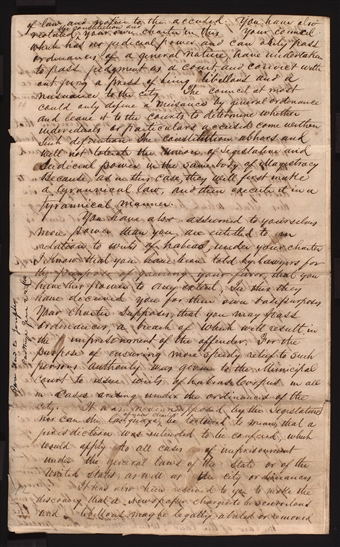 of law, and notice to the accused. You have also
violated your own charter in this
the constitution and
Your council
which had no judicial power and can only pass
ordinances of a general nature, have undertaken
to pass judgment as a court and convict with
out jury a press of being libellous and a
nuisance to the city. The council at most
could only define a nuisance by general ordinance
and leave it to the courts to determine whether
individuals or particulars accused come within
such definition. The constitution abhors and
will not tolerate the union of legislative and
Judicial power in the same body of magistracy
because, as in this case, they will first make
a tyrannical law, and then execute it in a
tyrannical manner.
You have also assumed to yourselves
more power than you are entitled to in
relation to writs of habeas under your charter
I know that you have been told by lawyers for
the purpose of gaining your favor, that you
have this power to any extent. In this they
have deceived you for their own base purposes
Your charter supposes that you may pass
ordinances, a breach of which will result in
the imprisonment of the offender. For the
purpose of insuring more speedy relief to such
persons authority was given to the Municipal
Court to issue writs of habeas corpus in all
cases arising under the ordinances of the
city. It was
by the legislature
nor can the language be tortured to mean, that a
jurisdiction was intended to be conferred which
would apply to all cases of imprisonment
under the general laws of the State or of the
United States, as well as the city ordinances
It has also been reserved to you to make the
discovery that a newspaper charged to be scurrilous
and libellous may be legally abated or removed